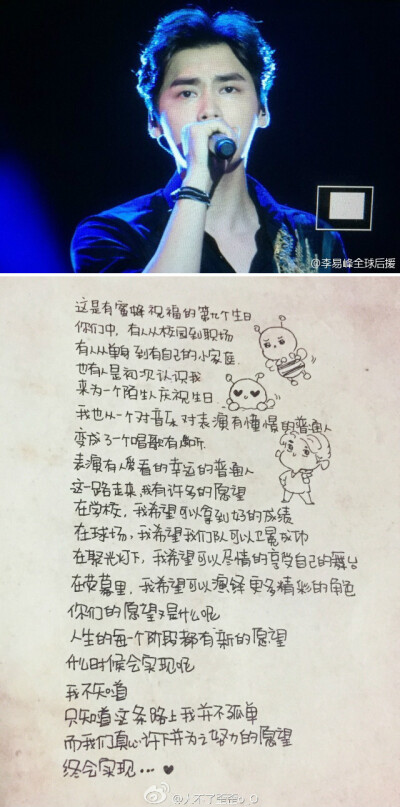 @李易峰全球后援
这是有蜜蜂祝福的第九个生日
你们中，有人从校园到职场
有人从单身到有自己的小家庭
也有人是初次认识我
来为一个陌生人庆祝生日
我也从一个对音乐对表演有憧憬的普通人
变成了一个唱歌有人听
表演有人爱看的幸运的普通人
这一路走来，我有许多的愿望
在学校，我希望可以拿到好的成绩
在球场，我希望我们队可以卫冕成功
在聚光灯下，我希望可以尽情的享受自己的舞台
在荧幕里，我希望可以演绎更多精彩的角色
你们的愿望又是什么呢
人生的每个阶段都有新的愿望
什么时候会实现呢
我不知道
只知道这条路上我并不孤单
而我们真心许下并为之努力的愿望
终会实现…